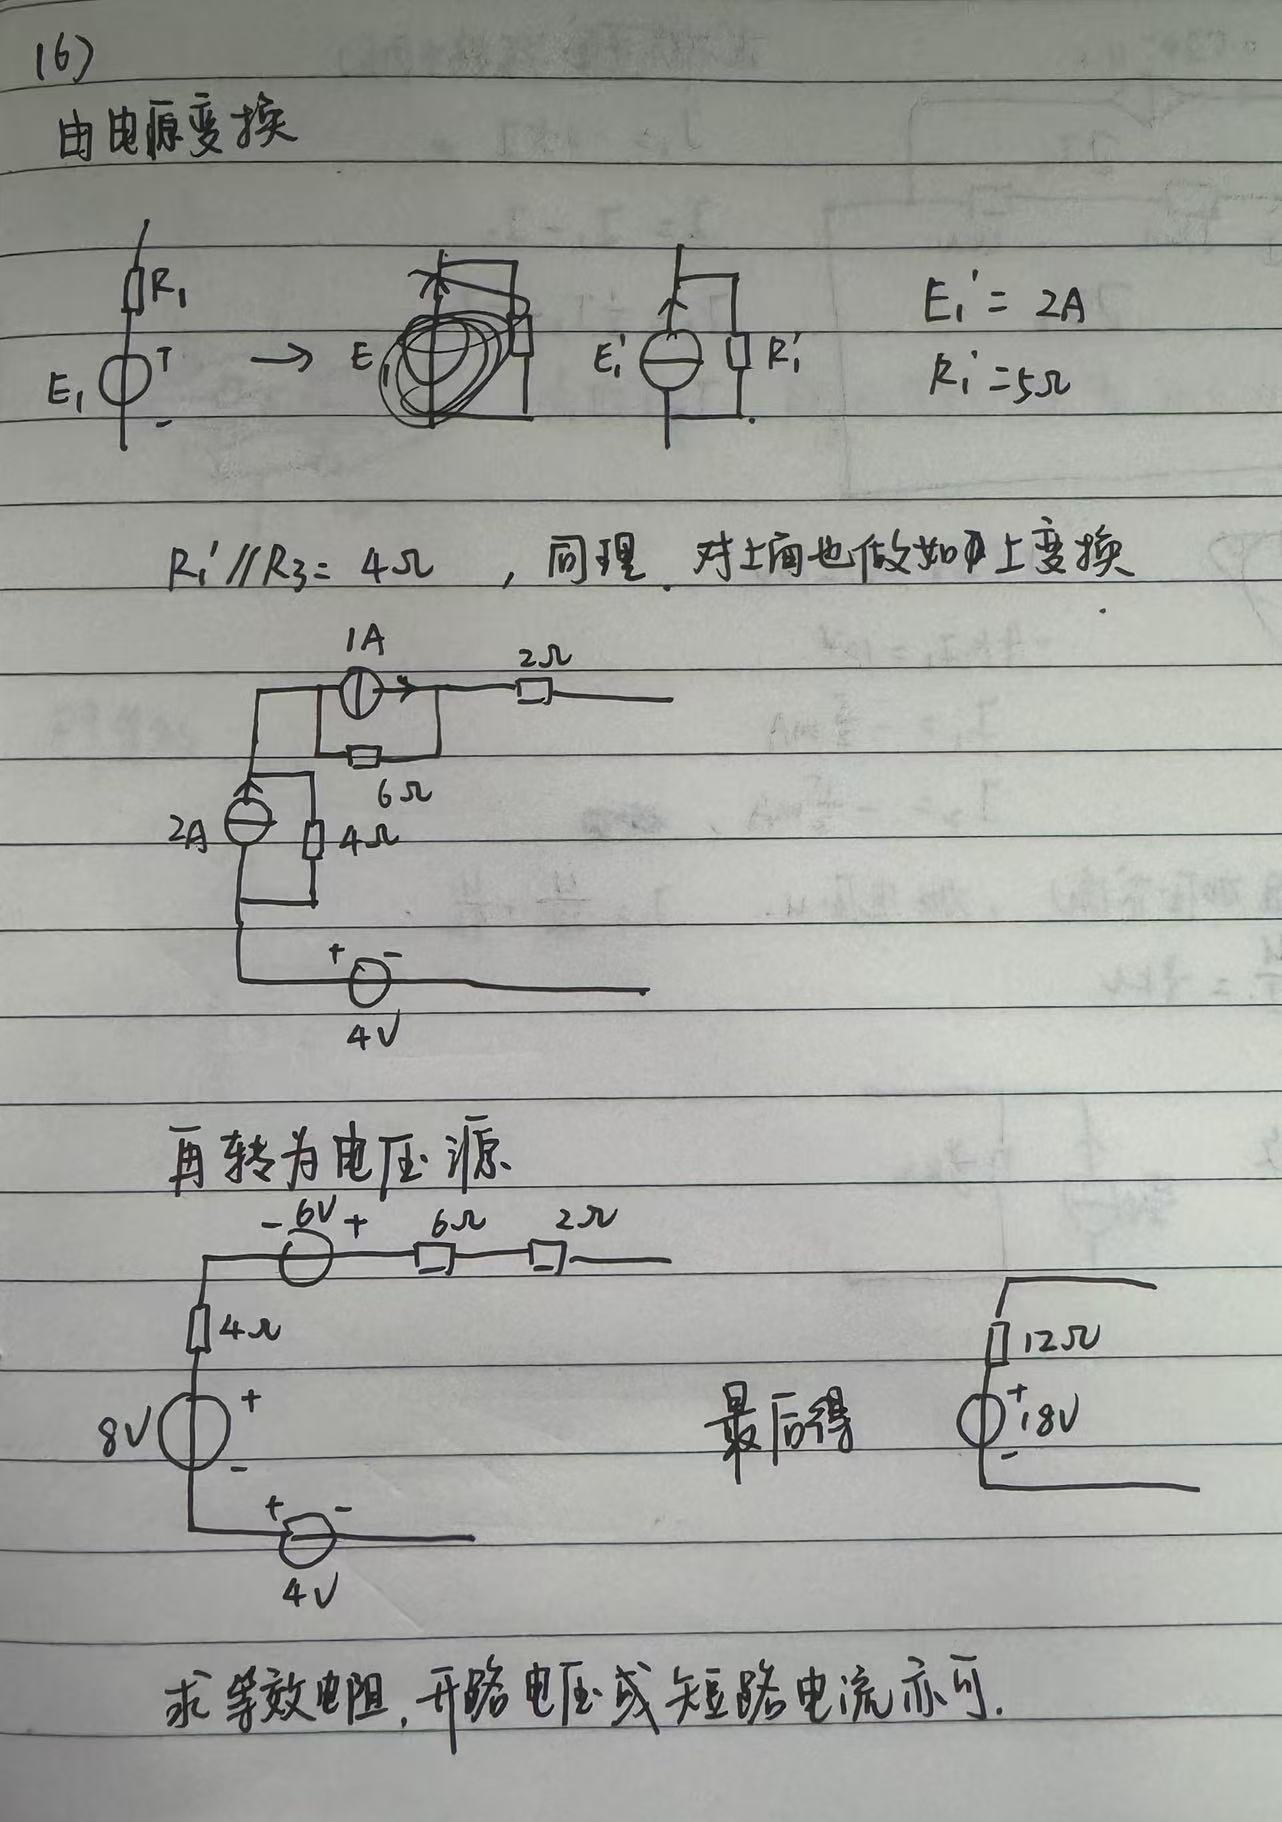 16)
由电源变换
R₁
E₁ + -
→
E₁
E₁' R₁'
E₁' = 2A
R₁' = 5Ω
R₁'//R₃ = 4Ω , 同理. 对上面也做如上变换
1A 2Ω
6Ω
2A 4Ω
+ -
4V
再转为电压源
- 6V + 6Ω 2Ω
4Ω
8V + -
+ -
4V
最后得
12Ω
+ 18V -
求等效电阻, 开路电压或短路电流亦可.